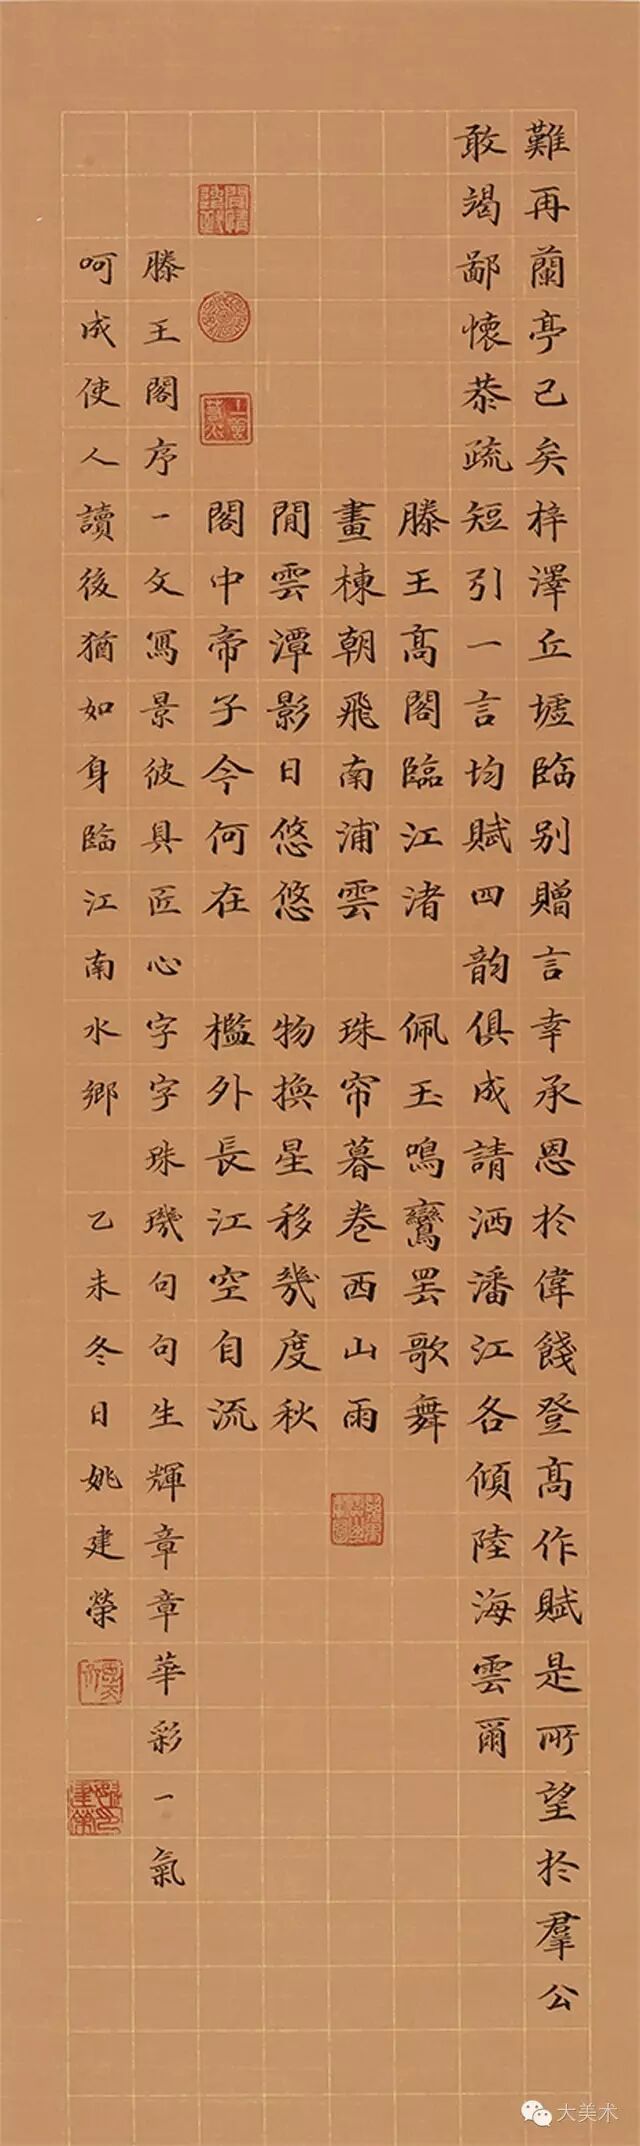 難再蘭亭已矣梓澤丘墟臨别贈言幸承恩於偉餞登髙作賦是所望於羣公
敢竭鄙懷恭疏短引一言均賦四韵俱成請洒潘江各傾陸海雲爾
滕王髙閣臨江渚 佩玉鳴鸞罷歌舞
畫棟朝飛南浦雲 珠帘暮卷西山雨
閒雲潭影日悠悠 物換星移幾度秋
閣中帝子今何在 檻外長江空自流
滕王閣序一文寫景彼具匠心字字珠璣句句生輝章章華彩一氣
呵成使人讀後猶如身臨江南水鄉 乙未冬日姚建榮
大美术